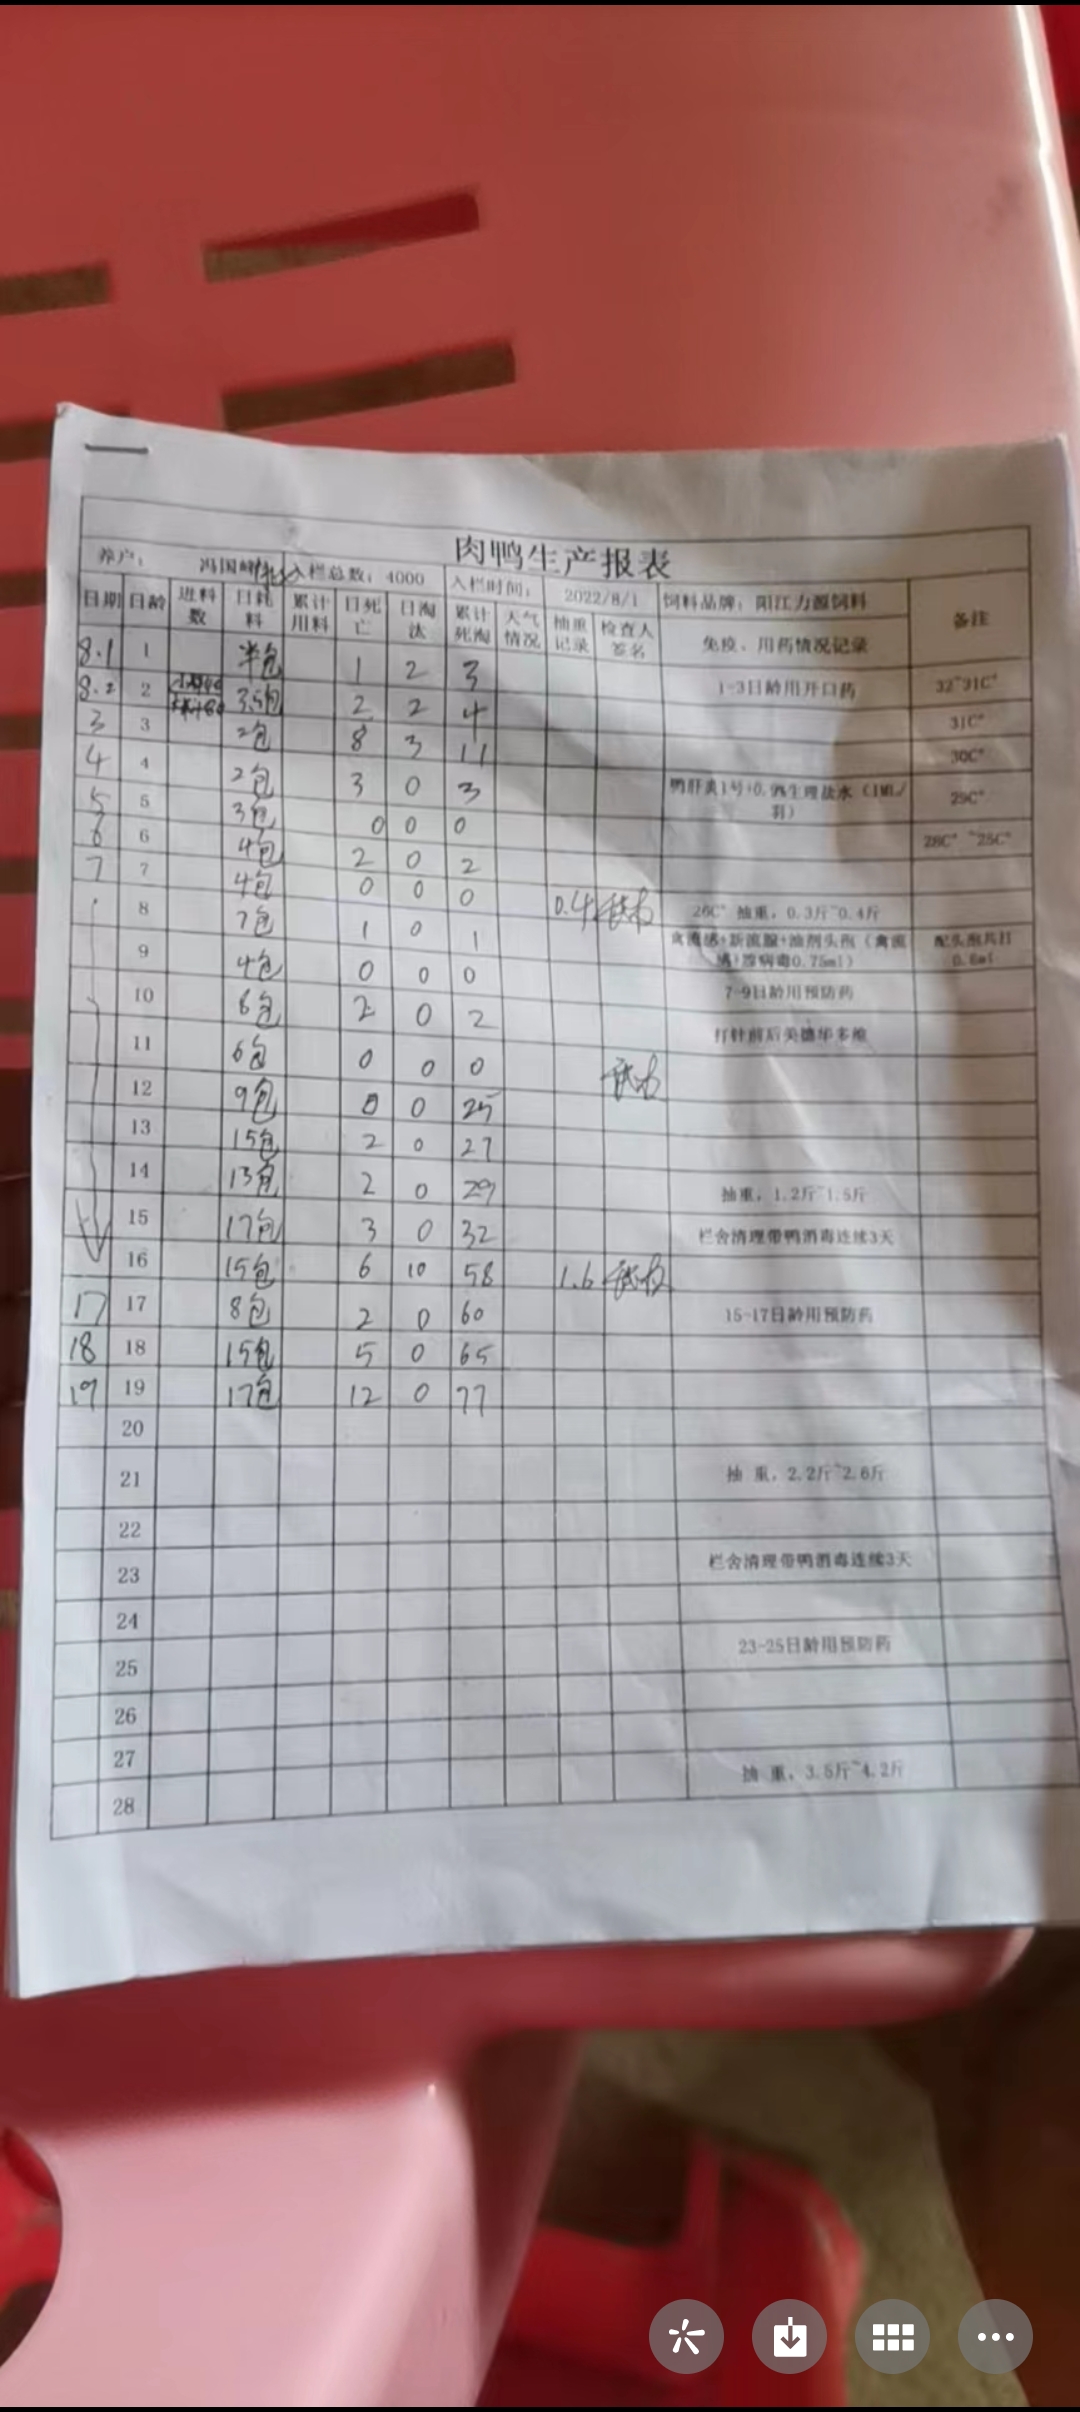 肉鸭生产报表
养户： 冯国 入栏总数：4000 入栏时间： 2022/8/1 饲料品牌：阳江力源饲料 备注
日期 日龄 进料数 日耗料 累计用料 日死亡 日淘汰 累计死淘 天气情况 抽重记录 检查人签名 免疫、用药情况记录
8.1 1 半包 1 2 3 1-3日龄用开口药 32~31C°
8.2 2 3.5包 2 2 4 31C°
3 3 2包 8 3 11 30C°
4 4 2包 3 0 3 鸭肝炎1号+0.9%生理盐水（1ML/羽） 29C°
5 5 3包 0 0 0 28C° ~25C°
6 6 4包 2 0 2
7 7 4包 0 0 0 0.4 26C° 抽重，0.3斤~0.4斤
8 7包 1 0 1 禽流感+新流腺+油剂头孢（禽流感+浆病毒0.75ml） 配头孢共打0.8ml
9 4包 0 0 0 7-9日龄用预防药
10 6包 2 0 2 打针前后关德华多维
11 6包 0 0 0
12 9包 0 0 25
13 15包 2 0 27
14 13包 2 0 29 抽重，1.2斤~1.5斤
15 17包 3 0 32 栏舍清理带鸭消毒连续3天
16 15包 6 10 58 1.6
17 17 8包 2 0 60 15-17日龄用预防药
18 18 15包 5 0 65
19 19 17包 12 0 77
20
21 抽 重，2.2斤~2.6斤
22
23 栏舍清理带鸭消毒连续3天
24
25 23-25日龄用预防药
26
27
28 抽 重，3.5斤~4.2斤